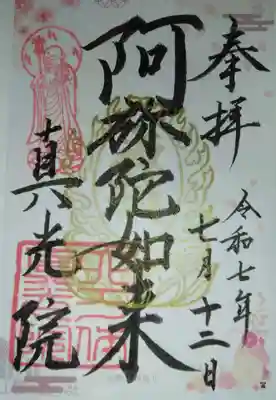 奉拝
令和七年
七月十二日
阿弥陀如来
真光院